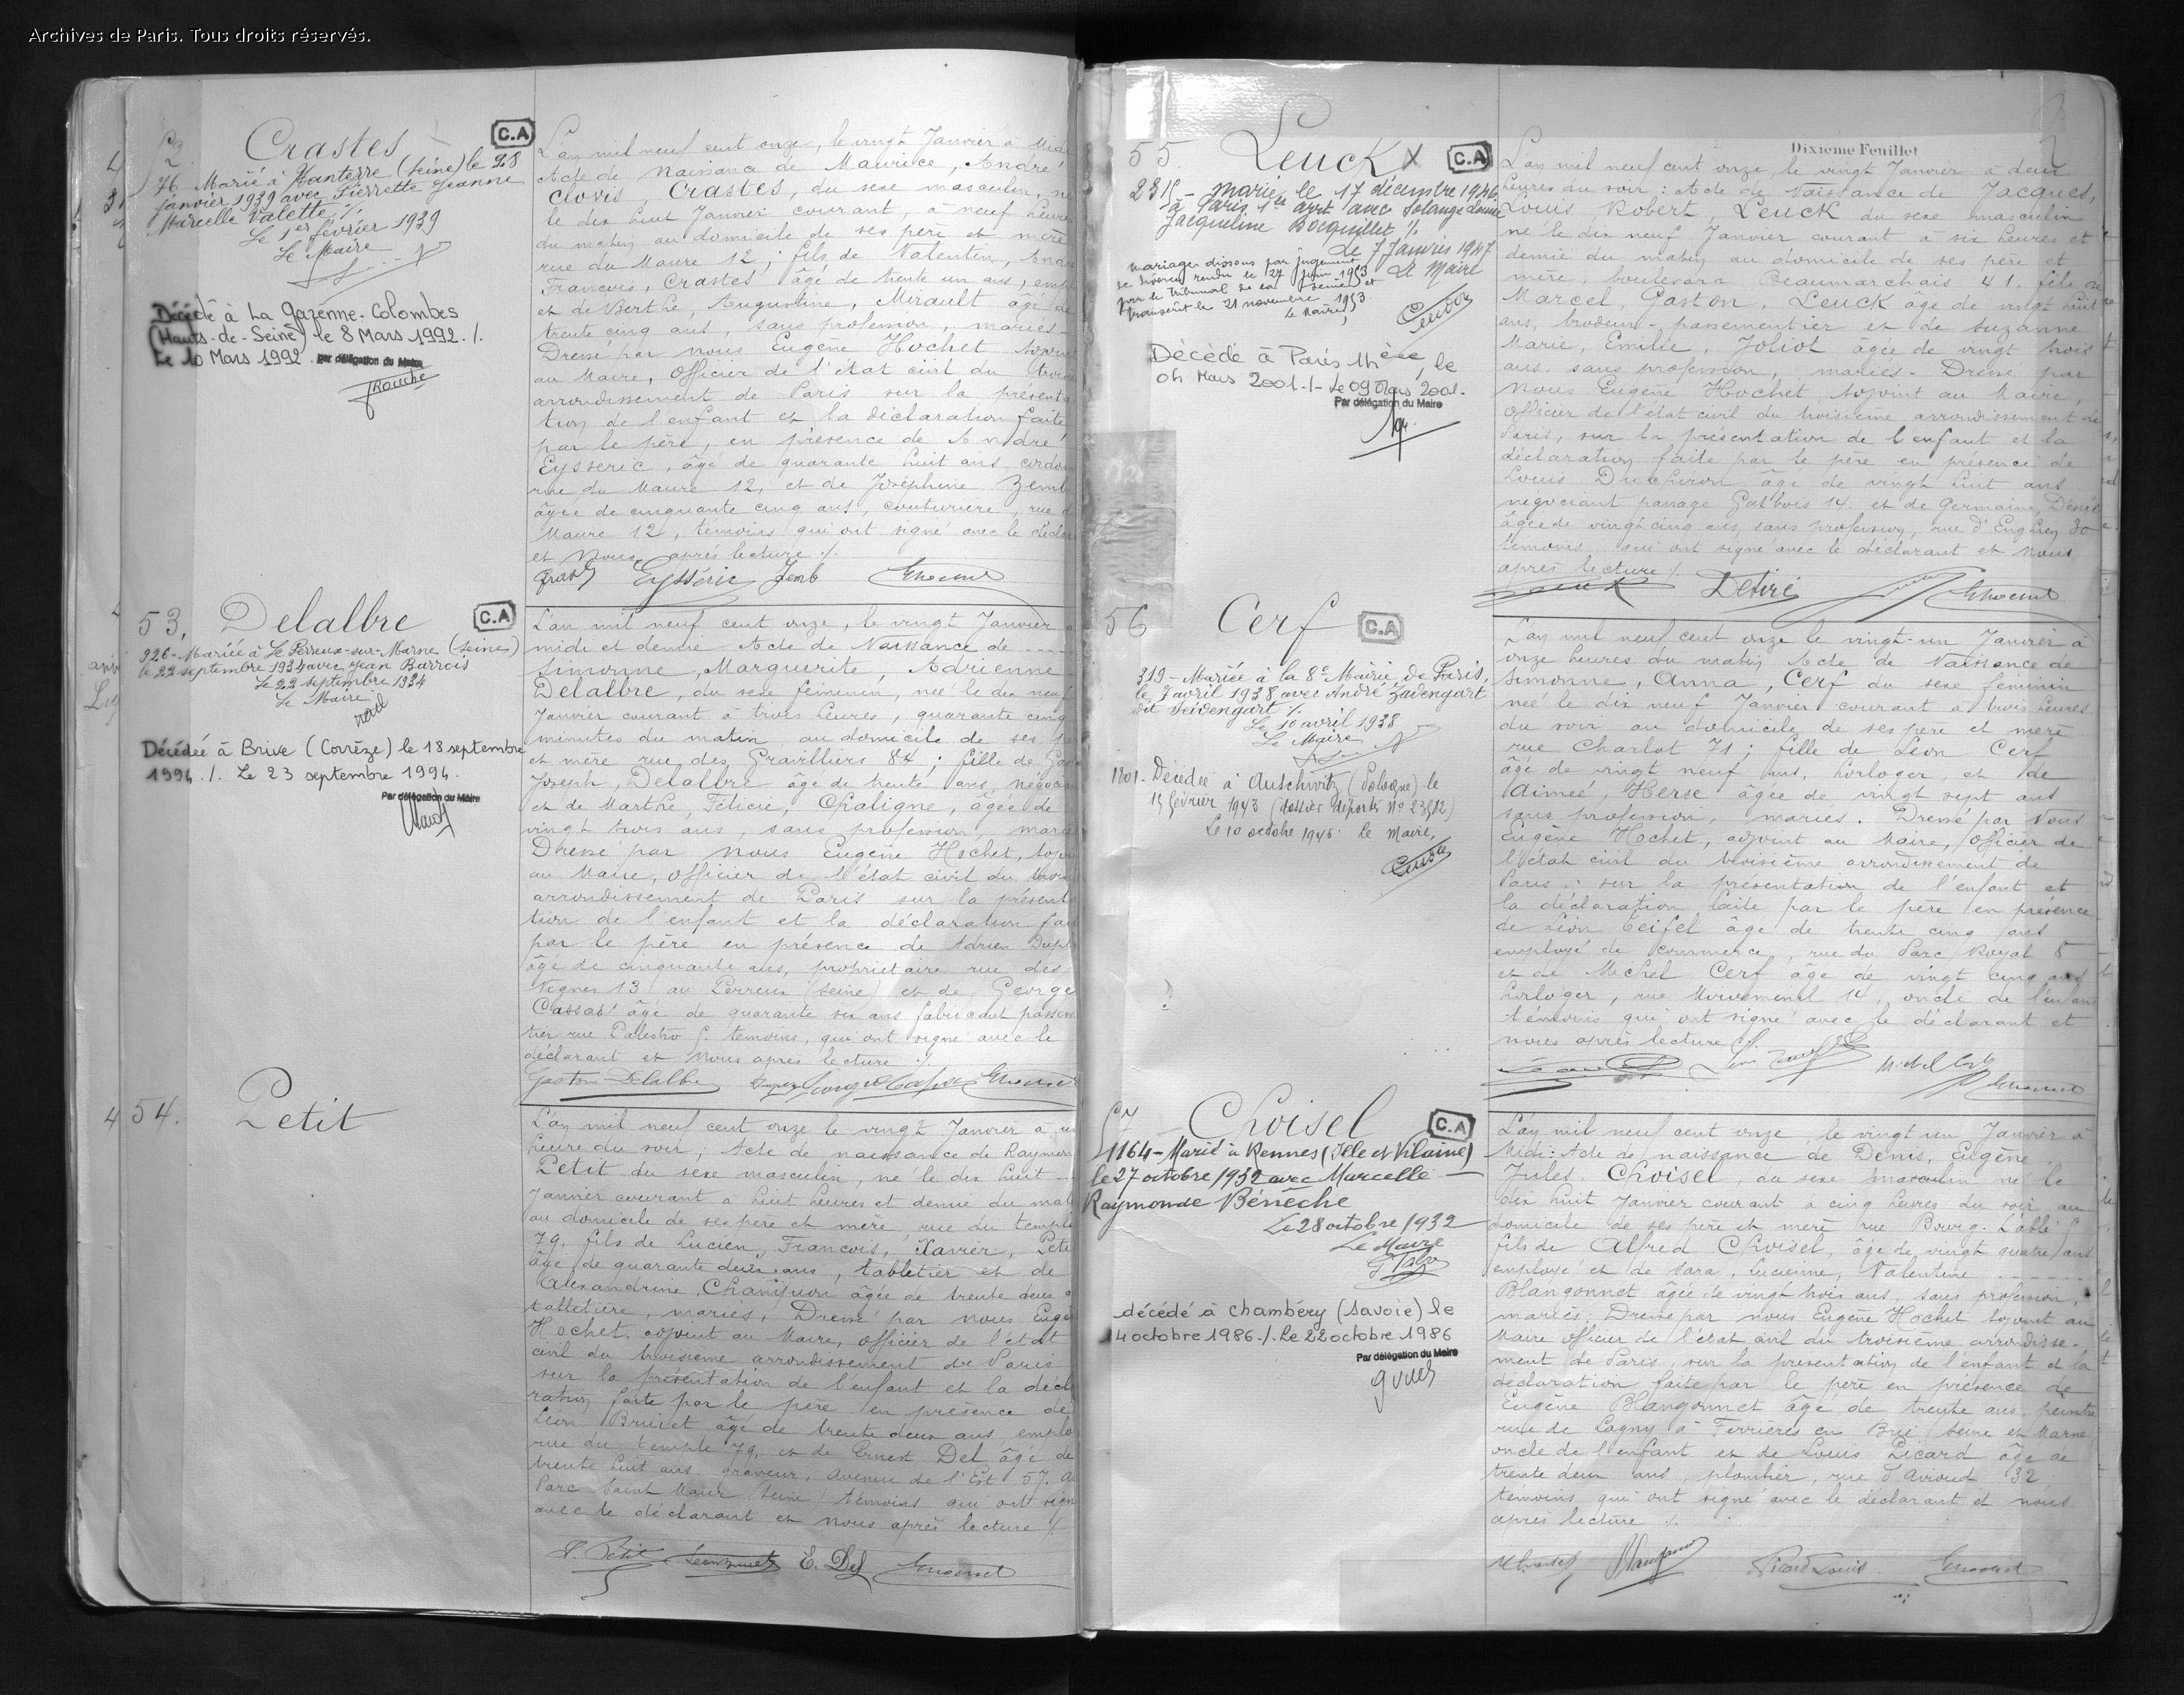 Archives de Paris. Tous droits réservés.
52
Crastes
C.A
76. Marié à Nanterre (Seine) le 28
janvier 1939 avec Pierrette Jeanne
Marcelle Valette ./.
Le 1er février 1939
Le Maire
Décédé à La Garenne-Colombes
(Hauts-de-Seine) le 8 Mars 1992 ./.
Le 10 Mars 1992. Par délégation du Maire
L'an mil neuf cent onze, le vingt Janvier à Midi
Acte de Naissance de Maurice, André
Clovis, Crastes, du sexe masculin, né
le dix huit Janvier courant à neuf heures
du matin au domicile de ses père et mère
rue du Maure 12, ; fils de Valentin, André
François, Crastes âgé de trente un ans,
et de Berthe, Augustine, Mirault âgée de
trente cinq ans, sans profession, mariés
Dressé par nous Eugène Hochet adjoint
au Maire, Officier de l'état civil du
arrondissement de Paris sur la présenta
tion de l'enfant et la déclaration faite
par le père, en présence de André
Eysseric, âgé de quarante huit ans,
rue du Maure 12, et de Joséphine Zemb
âgée de cinquante cinq ans, couturière, rue
Maure 12, témoins qui ont signé avec le
et Nous, après lecture ./.
Eysséric Zemb
53.
Delalbre
C.A
926 - Mariée à Le Perreux-sur-Marne (Seine)
le 22 septembre 1934 avec Jean Barrois
Le 22 septembre 1934
Le Maire
Décédée à Brive (Corrèze) le 18 septembre
1994 ./. Le 23 septembre 1994.
Par délégation du Maire
L'an mil neuf cent onze, le vingt Janvier à
midi et demie Acte de Naissance de
Simonne, Marguerite, Adrienne
Delalbre, du sexe féminin, née le dix neuf
Janvier courant à trois heures, quarante cinq
minutes du matin au domicile de ses
et mère rue des Gravilliers 84 ; fille de
Joseph, Delalbre âgé de trente ans,
et de Marthe, Félicie, Chaligne, âgée de
vingt trois ans, sans profession,
Dressé par nous Eugène Hochet,
au Maire, Officier de l'état civil du
arrondissement de Paris sur la présenta
tion de l'enfant et la déclaration
par le père en présence de Adrien
âgé de cinquante ans, propriétaire rue des
Vignes 13 au Perreux (Seine) et de George
Cassas âgé de quarante six ans fabricant
tier rue Palestro 5. témoins, qui ont signé avec le
déclarant et Nous après lecture ./.
Gaston Delalbre
54.
Petit
L'an mil neuf cent onze le vingt Janvier à
heure du soir ; Acte de naissance de
Petit du sexe masculin, né le dix huit
Janvier courant à huit heures et demie du
au domicile de ses père et mère, rue du temple
79. fils de Lucien, François, Xavier,
âgé de quarante deux ans, tabletier et de
Alexandrine, âgée de trente deux
tabletière, mariés, Dressé par nous
Hochet, adjoint au Maire, officier de l'état
civil du troisième arrondissement de Paris
sur la présentation de l'enfant et la
ration faite par le père en présence de
Léon Brunet âgé de trente deux ans,
rue du temple 79, et de Ernest Del âgé de
trente huit ans graveur, Avenue de l'Est 57.
Parc Saint Maur Seine témoins qui ont signé
avec le déclarant et nous après lecture ./.
Petit E. Del
Dixième Feuillet
55
Leuck X
C.A
2315 - Marié le 17 décembre 1946
à Paris 1er arrt avec Solange Louise
Jacqueline Bocquillet ./.
Le 7 Janvier 1947
Le Maire
Mariage dissous par jugement
de divorce rendu le 27 Juin 1953
par le tribunal de la Seine et
transcrit le 21 novembre 1953.
Le Maire,
Décédé à Paris 14ème, le
04 Mars 2001. /- Le 09 Mars 2001.
Par délégation du Maire
L'an mil neuf cent onze, le vingt Janvier à deux
heures du soir : Acte de Naissance de Jacques,
Louis Robert, Leuck du sexe masculin
né le dix neuf Janvier courant à six heures et
demie du matin au domicile de ses père et
mère, boulevard Beaumarchais 41. fils de
Marcel, Gaston, Leuck âgé de vingt huit
ans, brodeur-passementier et de Suzanne
Marie, Emilie, Joliot âgée de vingt trois
ans sans profession, mariés. Dressé par
nous Eugène Hochet adjoint au Maire,
Officier de l'état civil du troisième arrondissement de
Paris, sur la présentation de l'enfant et la
déclaration faite par le père en présence de
Louis Ducheron âgé de vingt huit ans
négociant passage Gatbois 14. et de Germaine,
âgée de vingt cinq ans, sans profession, rue d'Enghien 30
témoins, qui ont signé avec le déclarant et nous
après lecture ./.
56
Cerf
C.A
319 - Mariée à la 8e Mairie de Paris,
le 7 avril 1938 avec André Zadengart
dit Seidengart ./.
Le 10 avril 1938
Le Maire
1801. Décédée à Auschwitz (Pologne) le
15 février 1943 (dossier déportés No 23512)
Le 10 octobre 1946. Le Maire,
L'an mil neuf cent onze le vingt-un Janvier à
onze heures du matin Acte de Naissance de
Simonne, Anna, Cerf du sexe féminin
née le dix neuf Janvier courant à trois heures
du soir au domicile de ses père et mère
rue Charlot 71 ; fille de Léon Cerf
âgé de vingt neuf ans, horloger, et de
Aimée, Herse âgée de vingt sept ans
sans profession, mariés. Dressé par Nous
Eugène Hochet, adjoint au Maire, Officier de
l'état civil du troisième arrondissement de
Paris, sur la présentation de l'enfant et
la déclaration faite par le père en présence
de Léon âgé de trente cinq ans
employé de commerce, rue du Parc Royal 5
et de Michel Cerf âgé de vingt cinq ans
horloger, rue 14, oncle de l'enfant
témoins qui ont signé avec le déclarant et
nous après lecture ./.
57
Choisel
C.A
1164 - Marié à Rennes (Ille et Vilaine)
le 27 octobre 1932 avec Marcelle
Raymonde Bénéche
Le 28 octobre 1932
Le Maire
décédé à Chambéry (Savoie) le
14 octobre 1986 ./. Le 22 octobre 1986
Par délégation du Maire
L'an mil neuf cent onze, le vingt un Janvier à
Midi : Acte de naissance de Denis, Eugène
Jules Choisel, du sexe masculin né le
dix huit Janvier courant à cinq heures du soir au
domicile de ses père et mère rue Bourg-L'abbé
fils de Alfred Choisel, âgé de vingt quatre ans
employé et de Sara, Lucienne, Valentine
Blangonnet âgée de vingt trois ans, sans profession,
mariés. Dressé par nous Eugène Hochet adjoint au
Maire officier de l'état civil du troisième arrondisse-
ment de Paris, sur la présentation de l'enfant et la
déclaration faite par le père en présence de
Eugène Blangonnet âgé de trente ans peintre
rue de Lagny à Ferrières en Brie Seine et Marne
oncle de l'enfant et de Louis Picard âgé de
trente deux ans, plombier, rue 32
témoins qui ont signé avec le déclarant et nous
après lecture ./.
Picard Louis